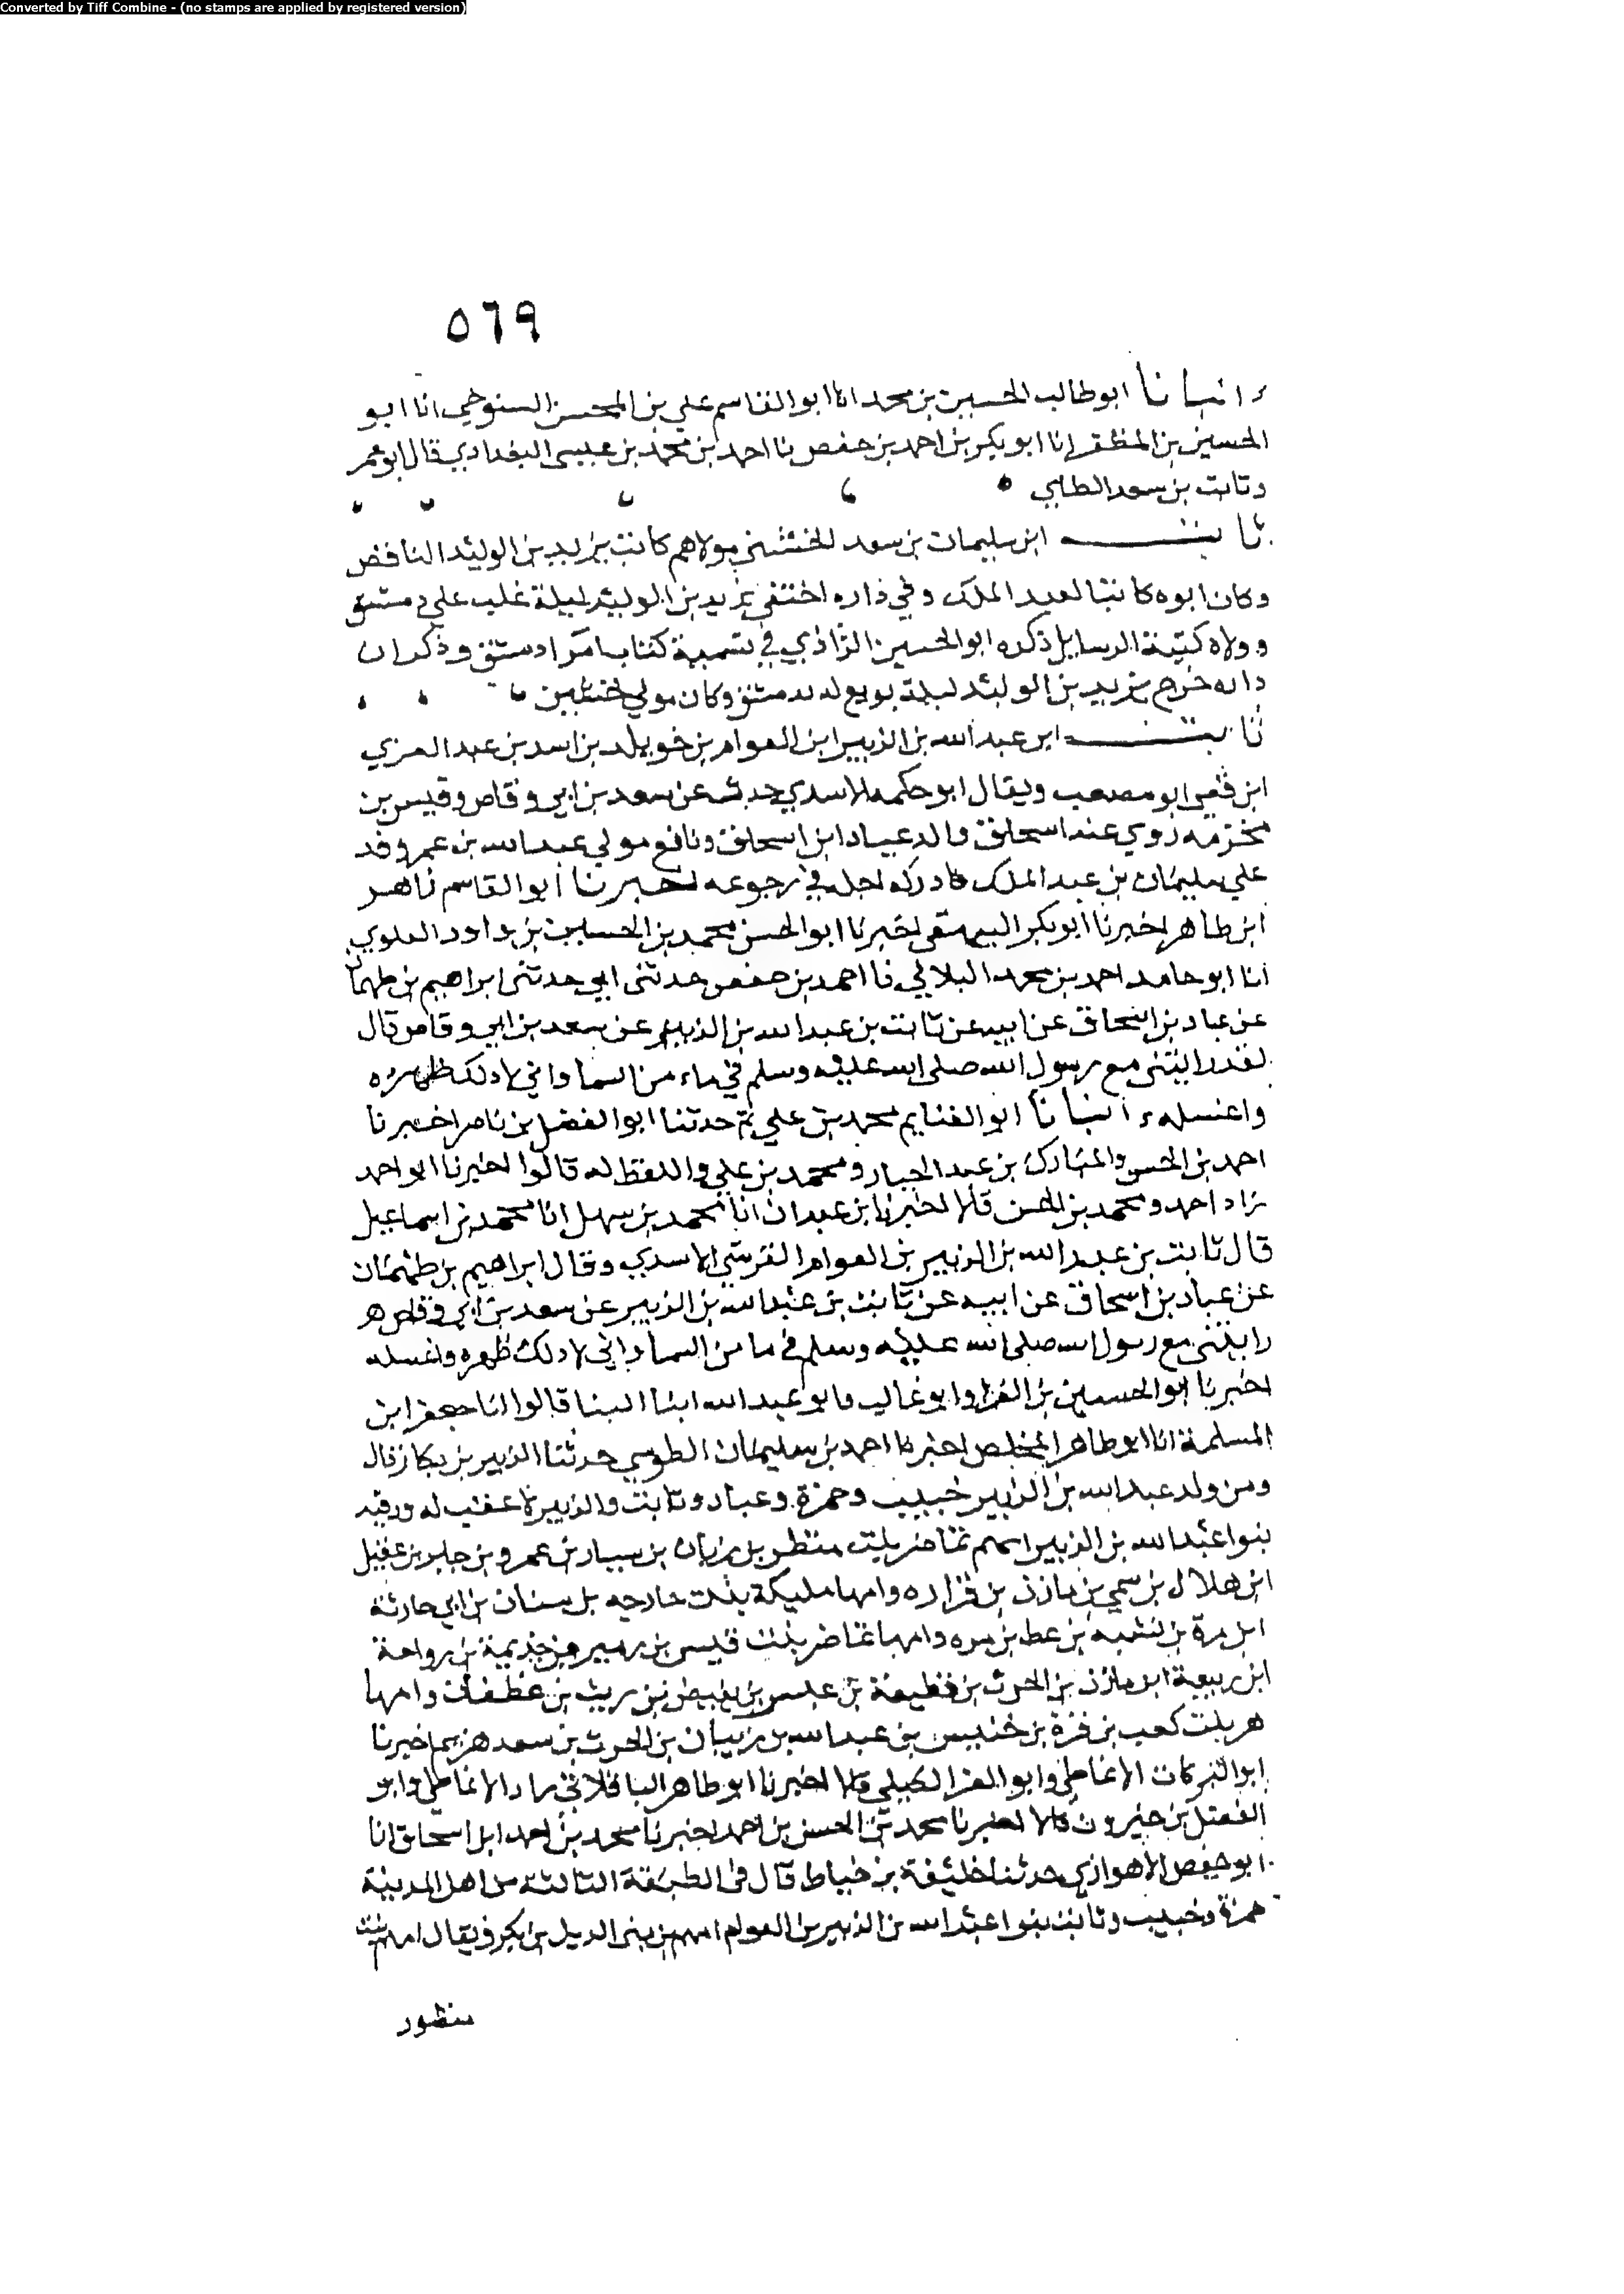 Converted by Tiff Combine - (no stamps are applied by registered version)
٥٦٩
انبانا ابو طالب الحسين بن محمد انا ابو القاسم علي بن المحسن السنوخي انا ابو
الحسين بن المظفر انا ابو بكر بن احمد بن حفص نا احمد بن محمد بن عيسى البغدادي قال ابو عمر
وثابت بن سعد الطائي
ثابت ابن سليمان بن سعد الخشني مولاهم كاتب يزيد بن الوليد الناقض
وكان ابوه كاتبا لعبد الملك وفي داره اختفى يزيد بن الوليد ليلة غلب على دمشق
وولاه كتبة الرسايل ذكره ابو الحسين الرازي في تسمية كتاب امرا دمشق وذكر ان
داره خرج يزيد بن الوليد ليلة بويع له بدمشق وكان مولي خشين
ثابت ابن عبد الله بن الزبير ابن العوام بن خويلد بن اسد بن عبد العزي
ابن قصي ابو مصعب ويقال ابو حكمه الاسدي حدث عن سعد بن ابي وقاص وقيس بن
مخرمه روي عنه اسحاق والد عباد ابن اسحاق ونافع مولي عبد الله بن عمر وفد
علي سليمان بن عبد الملك فادركه اجله في رجوعه اخبرنا ابو القاسم زاهر
ابن طاهر اخبرنا ابو بكر البيهقي اخبرنا ابو الحسن محمد بن الحسين بن داود العلوي
انا ابو حامد احمد بن محمد البلالي نا احمد بن حفص حدثنى ابي حدثنى ابراهيم بن طهمان
عن عباد بن اسحاق عن ابيه عن ثابت بن عبد الله بن الزبير عن سعد بن ابي وقاص قال
لقد رايتنى مع رسول الله صلى الله عليه وسلم في ماء من السما واني لادلك ظهره
واغسله انبانا ابو الغنايم محمد بن علي ثم حدثنا ابو الفضل بن ناصر اخبرنا
احمد بن الحسن والمبارك بن عبد الجبار ومحمد بن علي واللفظ له قالوا اخبرنا ابو احمد
زاد احمد ومحمد بن الحسن قالا اخبرنا بن عبدان انا محمد بن سهل انا محمد بن اسماعيل
قال ثابت بن عبد الله بن الزبير بن العوام القرشي الاسدي وقال ابراهيم بن طهمان
عن عباد بن اسحاق عن ابيه عن ثابت بن عبد الله بن الزبير عن سعد بن ابي وقاص
رايتنى مع رسول الله صلى الله عليه وسلم في ما من السما واني لادلك ظهره واغسله
اخبرنا ابو الحسين بن الفرا وابو غالب وابو عبد الله ابنا البنا قالوا انا جعفر ابن
المسلمة انا ابو طاهر المخلص اخبرنا احمد بن سليمان الطوسي حدثنا الزبير بن بكار قال
ومن ولد عبد الله بن الزبير خبيب وحمزة وعباد وثابت والزبير لا عقب له ورقيه
بنوا عبد الله بن الزبير امهم تماضر بنت منظور بن زبان بن سيار بن عمرو بن جابر بن عقيل
ابن هلال بن سمي بن مازن بن فزاره وامها مليكة بنت خارجه بن سنان بن ابي حارثة
ابن مرة بن نشبه بن غيظ بن مره وامها تماضر بنت قيس بن زهير بن جذيمة بن رواحة
ابن ربيعة ابن مازن بن الحرث بن قطيعة بن عبس بن بغيض بن ريث بن غطفان وامها
هر بنت كعب بن قرة بن خنيس بن عبد الله بن زبيان بن الحرث بن سعد هزيم اخبرنا
ابو البركات الانماطي وابو العز الكيلي قالا اخبرنا ابو طاهر الباقلاني زاد الانماطي وابو
الفضل بن خيرون قالا اخبرنا محمد بن الحسن بن احمد اخبرنا محمد بن احمد ابن اسحاق انا
ابو حفص الاهوازي حدثنا خليفة بن خياط قال في الطبقة الثالثة من اهل المدينة
حمزة وخبيب وثابت بنوا عبد الله بن الزبير بن العوام امهم من بنى الديل بن بكر ويقال امهم بنت
منظور